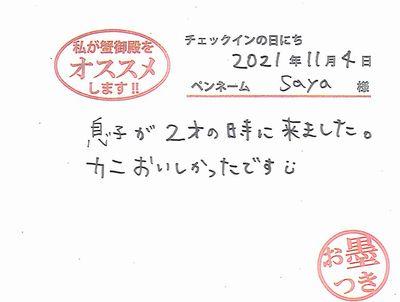 私が蟹御殿を
オススメ
します!!
チェックインの日にち
2021年11月4日
ペンネーム saya 様
息子が2才の時に来ました。
カニおいしかったです
お墨
つき